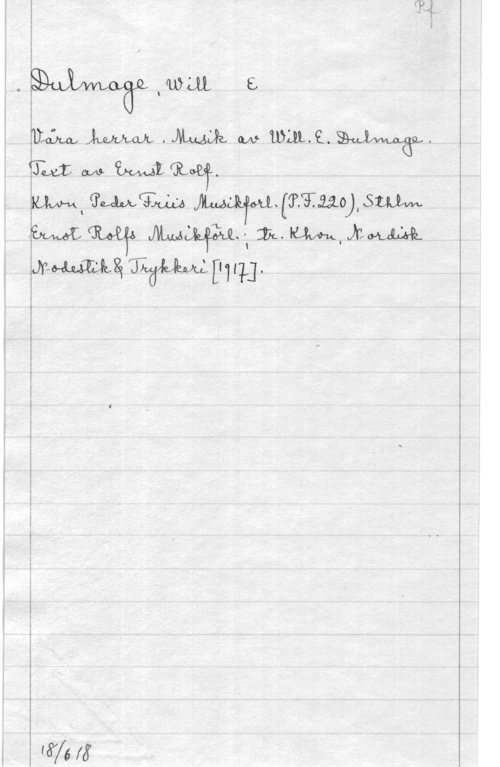 Pf
Dulmage, Will E
Våra herrar. Musik av Will. E. Dulmage.
Text av Ernst Rolf.
Khvn, Peder Friis Musikforl. (P.F.220), Sthlm
Ernst Rolfs Musikförl.; tr. Khvn, Nordisk
Nodestik & Trykkeri [1917].
18/6 18